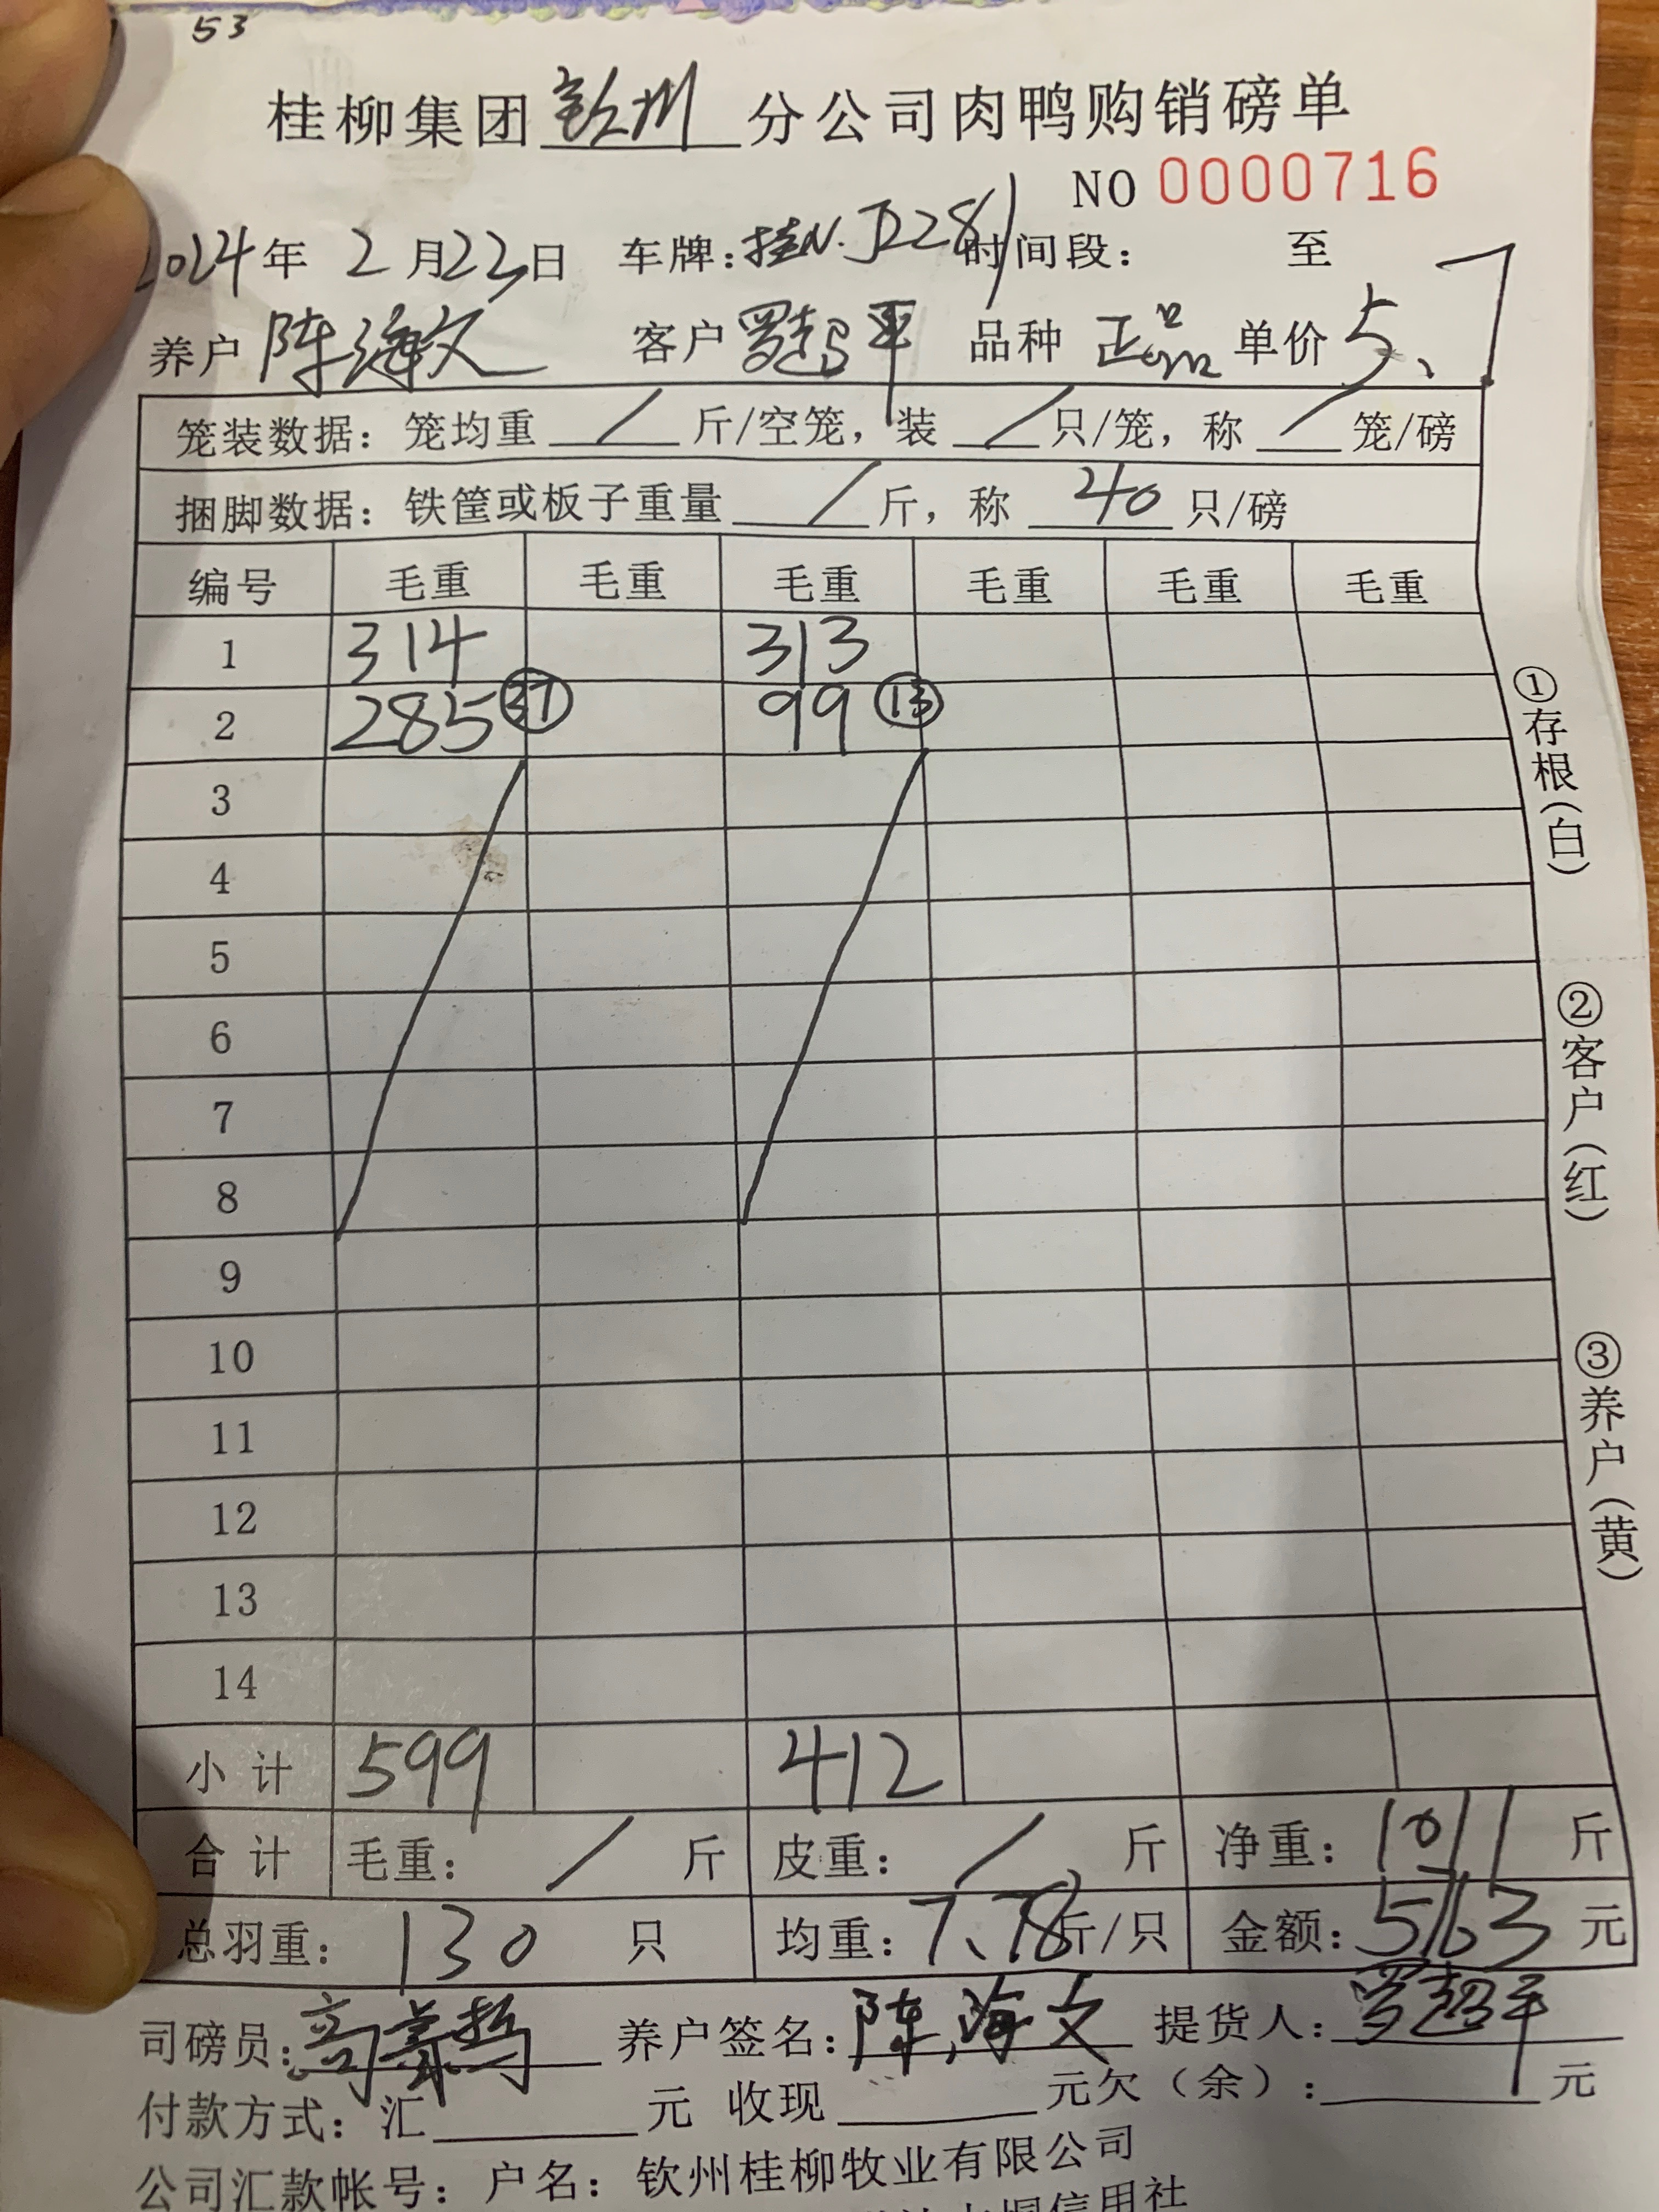 53
桂柳集团钦州分公司肉鸭购销磅单
NO 0000716
2024年 2月22日 车牌:桂N.J2281 时间段: 至
养户 陈海文 客户 罗超平 品种 正品 单价 5.1
笼装数据: 笼均重 / 斤/空笼, 装 / 只/笼, 称 / 笼/磅
捆脚数据: 铁筐或板子重量 / 斤, 称 40 只/磅
编号 毛重 毛重 毛重 毛重 毛重 毛重
1 314 313
2 285 37 99 13
3
4
5
6
7
8
9
10
11
12
13
14
小计 599 412
合计 毛重: / 斤 皮重: / 斤 净重: 1011 斤
总羽重: 130 只 均重: 7.78 斤/只 金额: 5163 元
司磅员: 养户签名: 陈海文 提货人: 罗超平
付款方式: 汇 元 收现 元欠(余): 元
公司汇款帐号: 户名: 钦州桂柳牧业有限公司
信用社
①存根(白)
②客户(红)
③养户(黄)